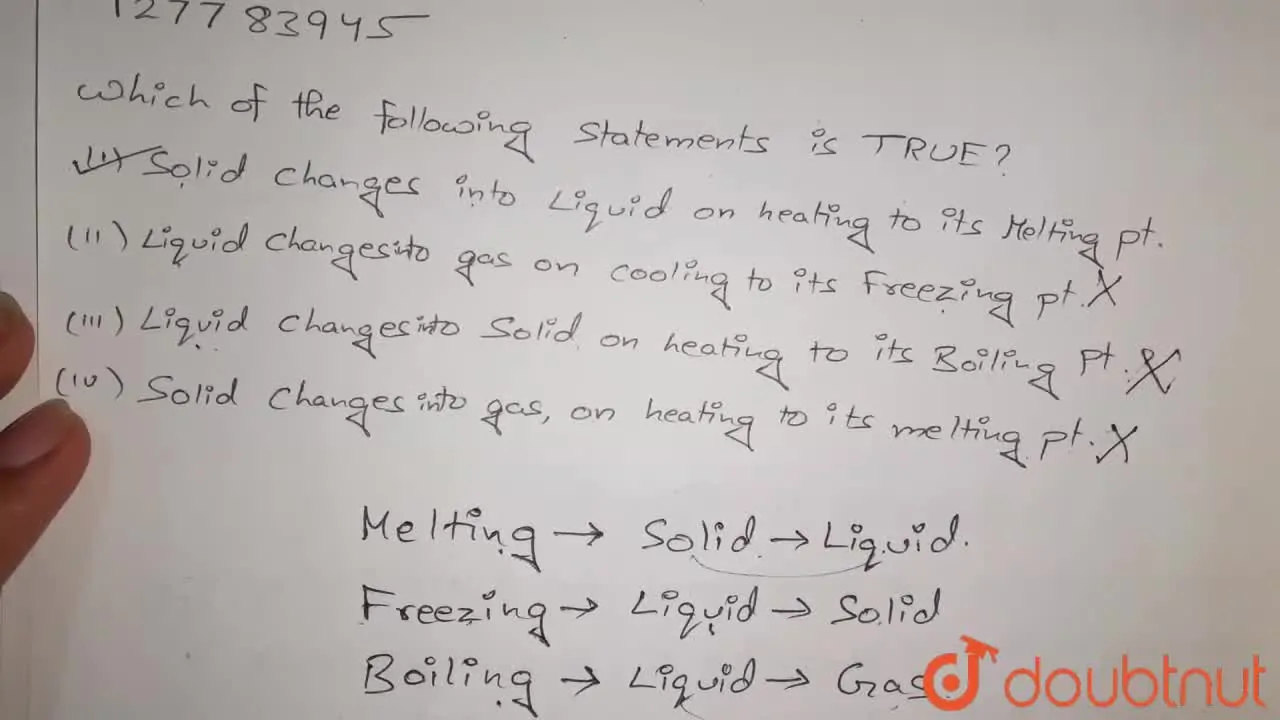 1277 83945
Which of the following Statements is TRUE?
(i) Solid changes into Liquid on heating to its Melting pt.
(11) Liquid changes into gas on cooling to its Freezing pt. X
(111) Liquid changes into Solid on heating to its Boiling Pt. X
(10) Solid changes into gas, on heating to its melting pt. X
Melting → Solid → Liquid.
Freezing → Liquid → Solid
Boiling → Liquid → Gas
doubtnut